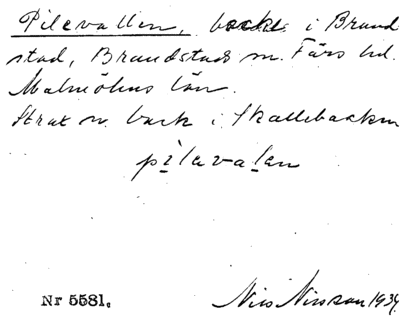 Pilevallen, backe i Brand
stad, Brandstads sn. Färs hd.
Malmöhus län.
Strax n. bäck i Skallebacken
pilavalen
Nr 5581.
Nils Nilsson 1934.